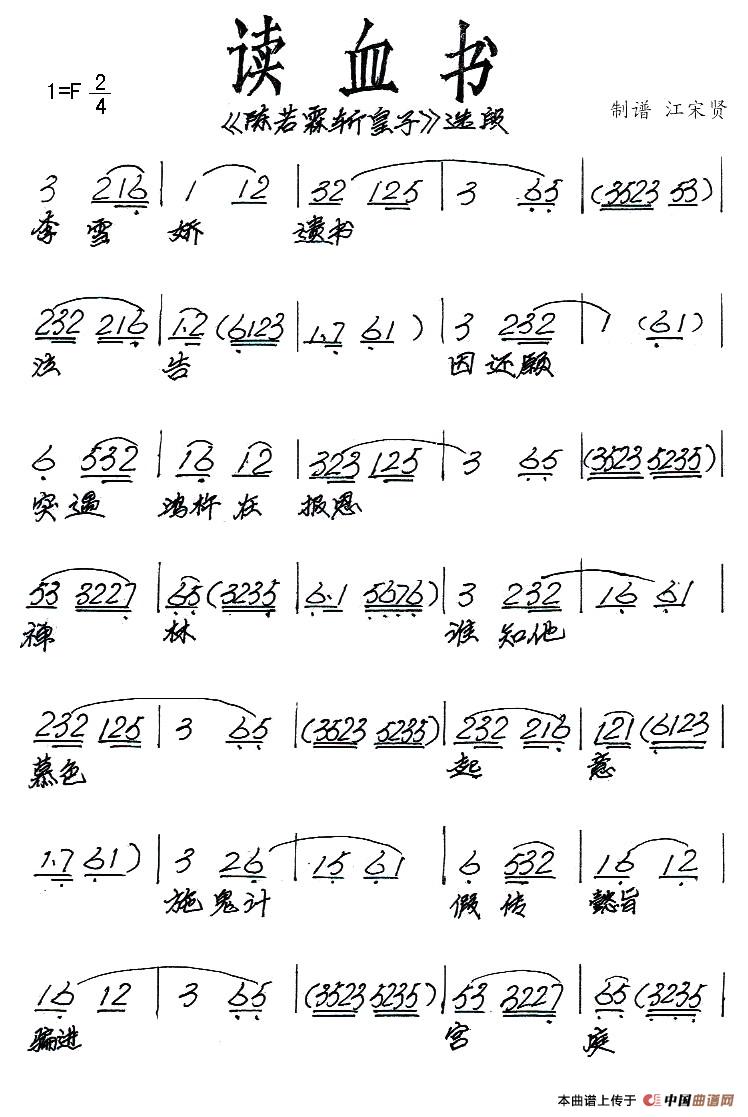 读血书
1=F 2/4
《陈若霖斩皇子》选段
制谱 江宋贤
3 216 | 1 12 | 32 125 | 3 65 | (3523 53) |
李雪 娇 遗书
232 216 | 1.2 (6123 | 1.7 61) | 3 232 | 1 (61) |
泣 告 因还愿
6 532 | 16 12 | 323 125 | 3 65 | (3523 5235) |
突遇 鸿 在 报恩
53 3227 | 65 (3235 | 6.1 5676) | 3 232 | 16 61 |
禅 林 谁 知他
232 125 | 3 65 | (3523 5235) | 232 216 | 121 (6123 |
慕色 起 意
1.7 61) | 3 26 | 15 61 | 6 532 | 16 12 |
施鬼计 假 传 懿旨
16 12 | 3 65 | (3523 5235) | 53 3227 | 65 (3235 |
骗进 宫 庭
本曲谱上传于 中国曲谱网